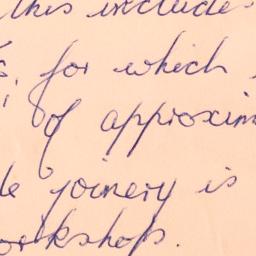 this include
for which
of approxim
joinery is
workshops.